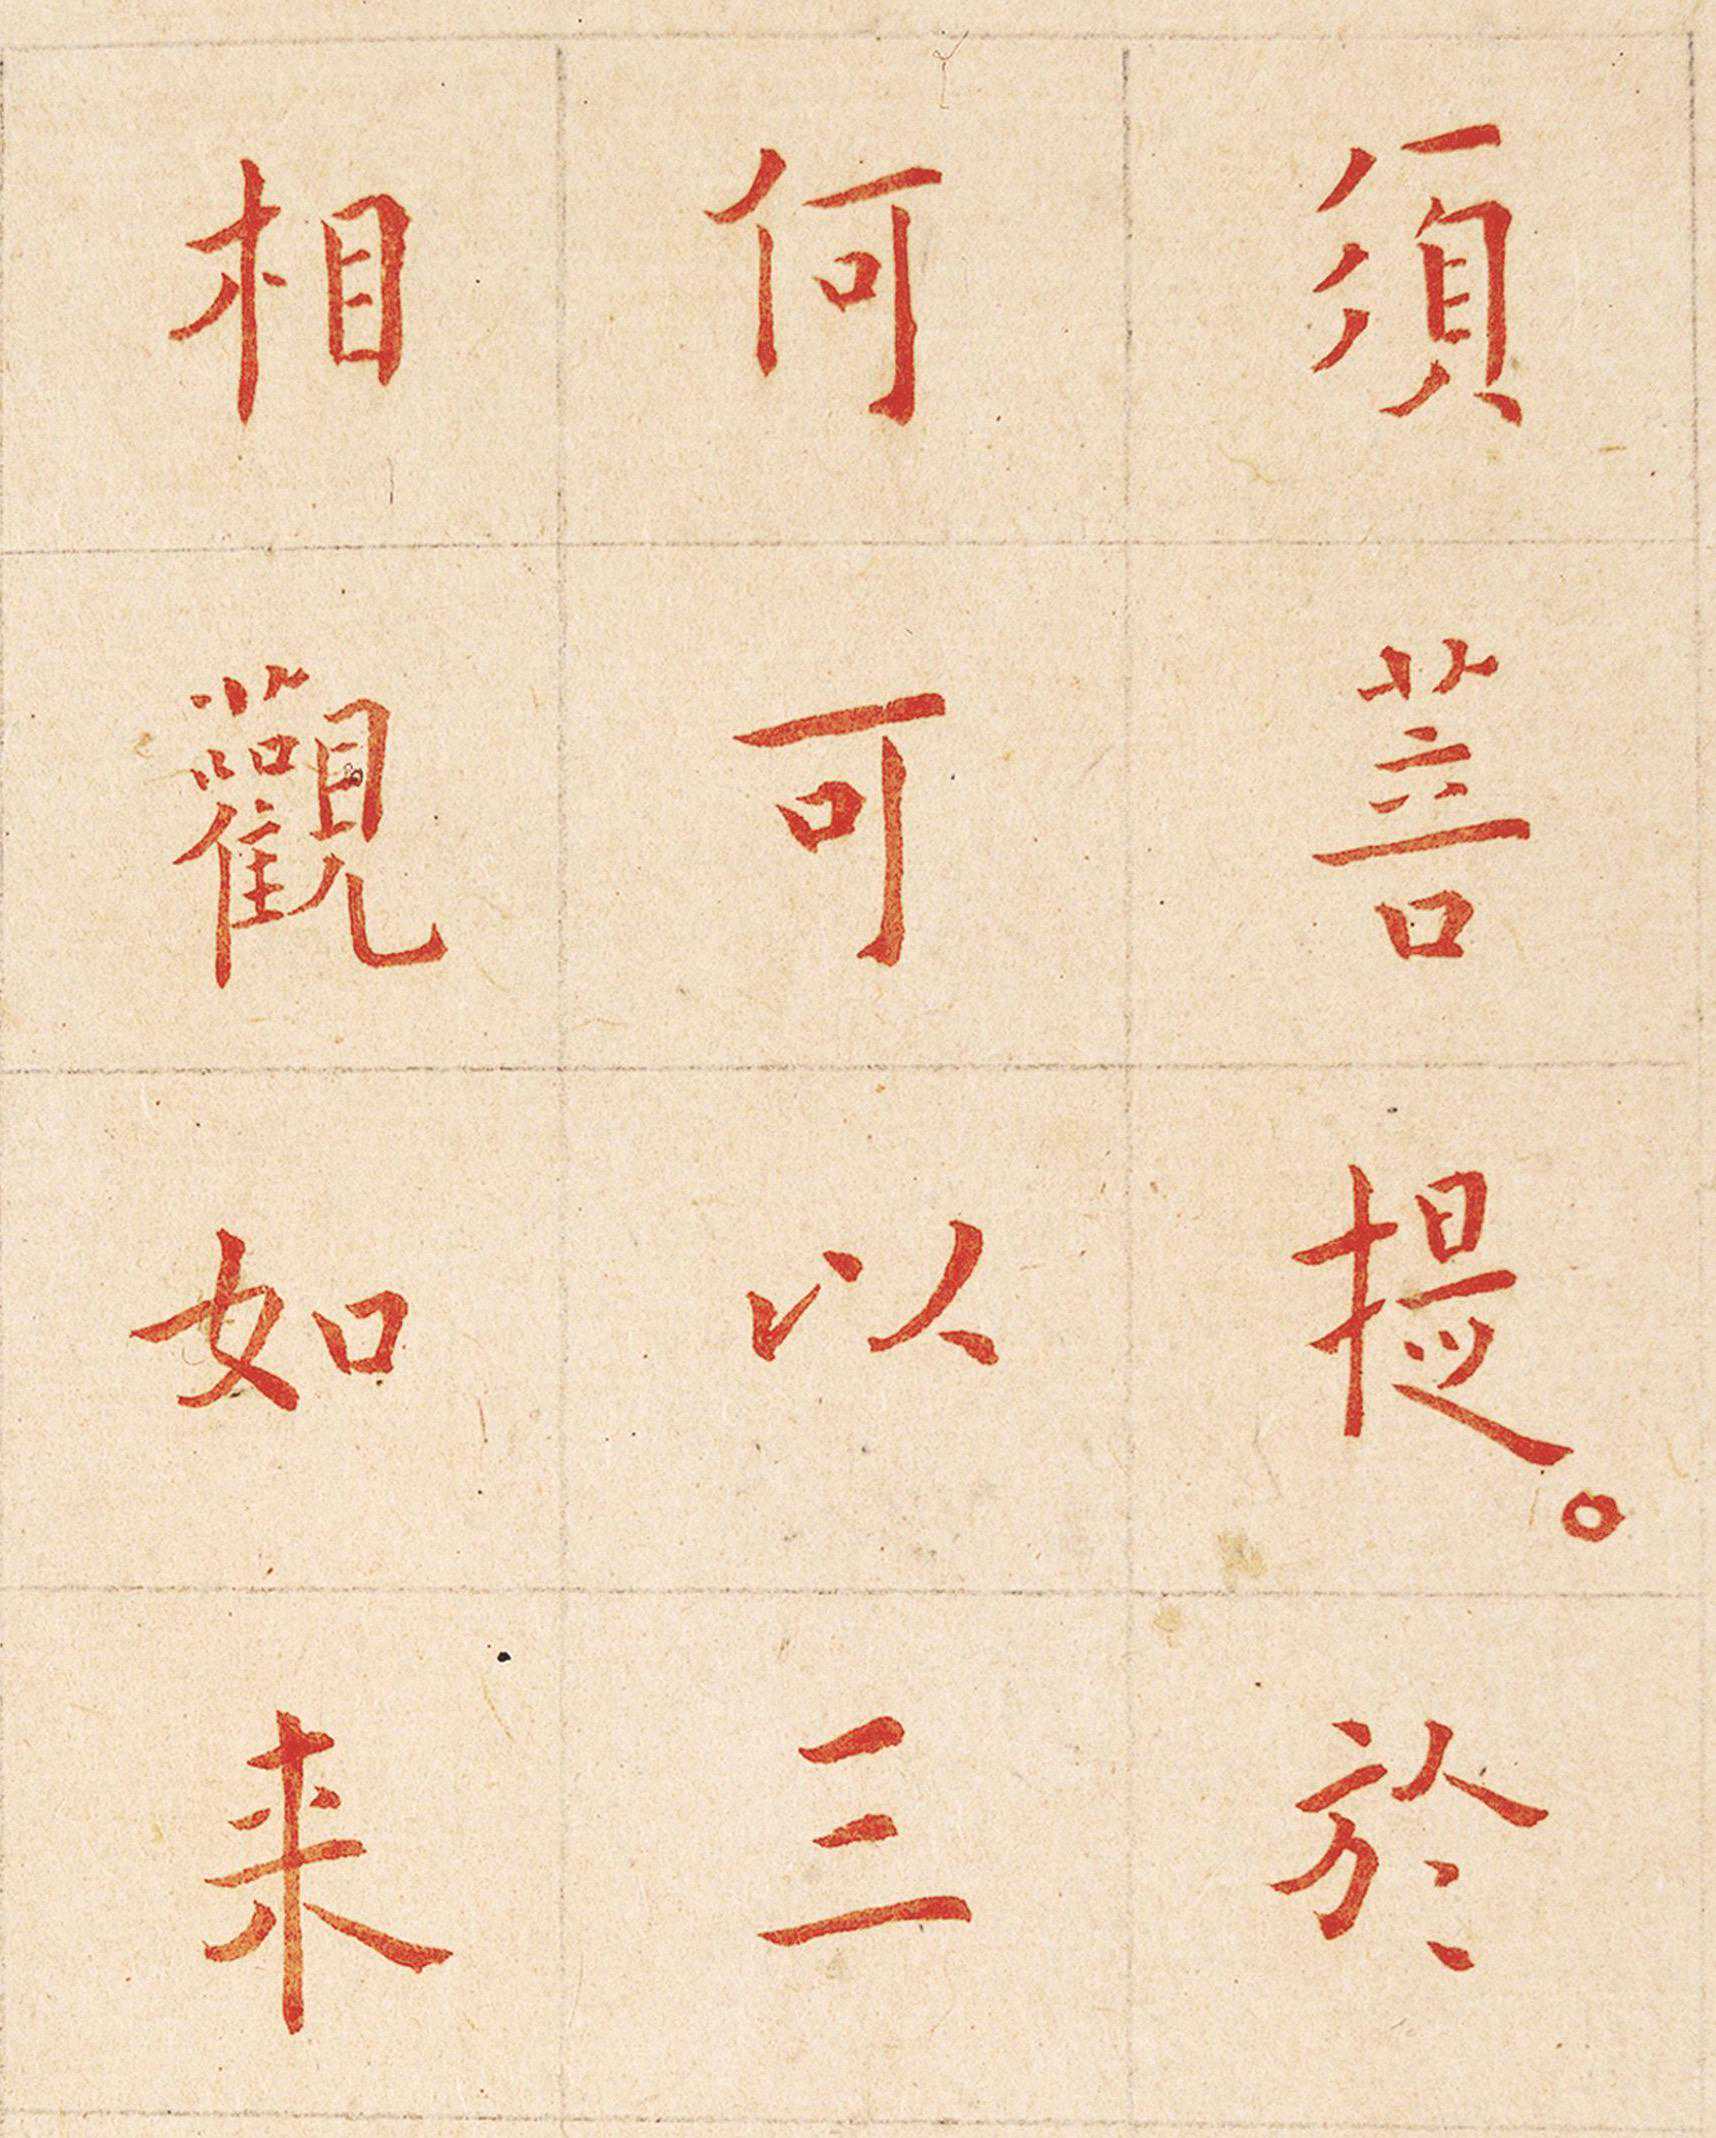 須菩提。於
何可以三
相觀如来